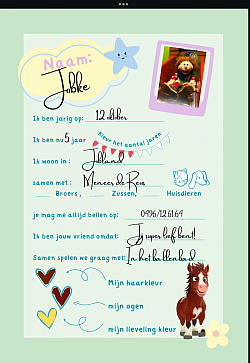 Naam:
Jobke
Ik ben jarig op: 12 oktober
Ik ben nu 5 jaar
Kleur het aantal jaren
Ik woon in: Jobland
samen met: Meneer de Reus
Broers, Zussen, Huisdieren
je mag me altijd bellen op: 0496/12.61.64
Ik ben jouw vriend omdat: Jij super lief bent!
Samen spelen we graag met: In het ballenbad
Mijn haarkleur
mijn ogen
mijn lieveling kleur